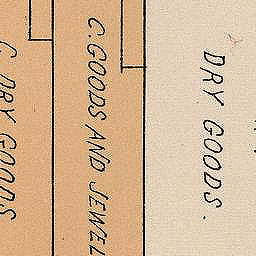 DRY GOODS.
C. GOODS AND JEWEL
C. DRY GOODS